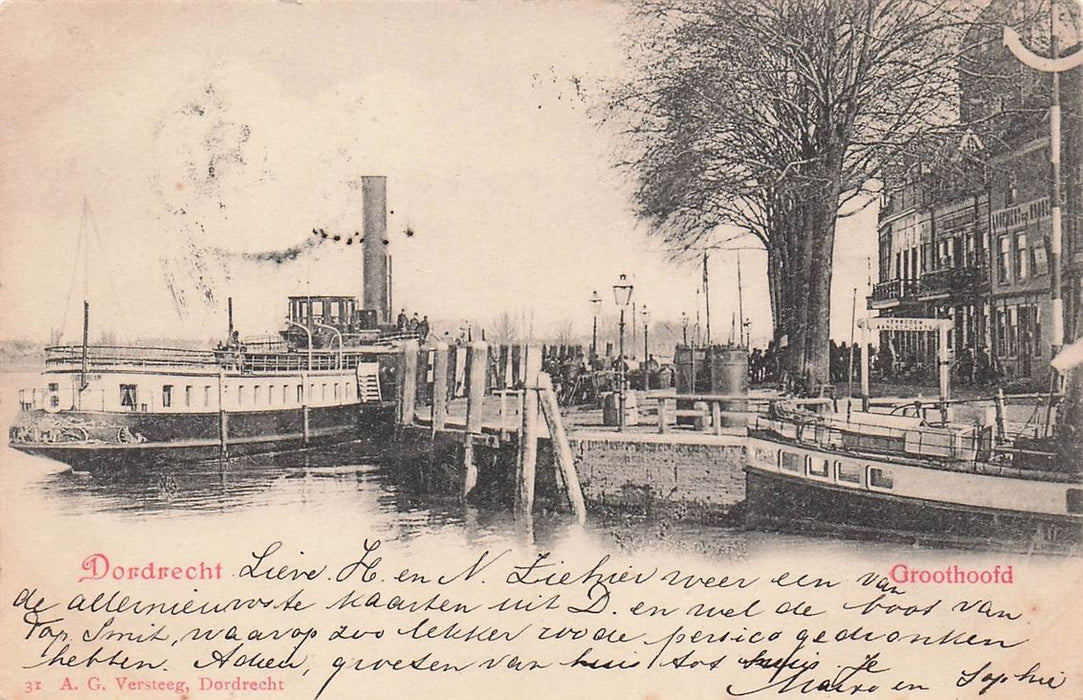 Dordrecht
Groothoofd
Lieve H. en N. Ziehier weer een van
de allernieuwste kaarten uit D. en wel de boot van
Kap. Smit, waarop zoo lekker roode persico gedronken
hebben. Adieu, groeten van huis tot huis. Je
Marie en Sophie
31 A. G. Versteeg, Dordrecht